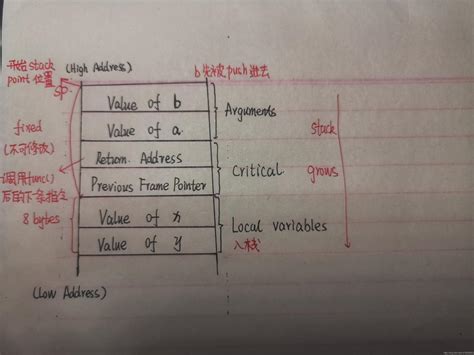 开始stack
point 位置
(High Address)
b 先被push进去
SP
Value of b
Value of a
Arguments
stack
grows
fixed
(不可修改)
Return Address
Previous Frame Pointer
Critical
调用func()
后的下条指令
8 bytes
Value of x
Value of y
Local variables
入栈
(Low Address)